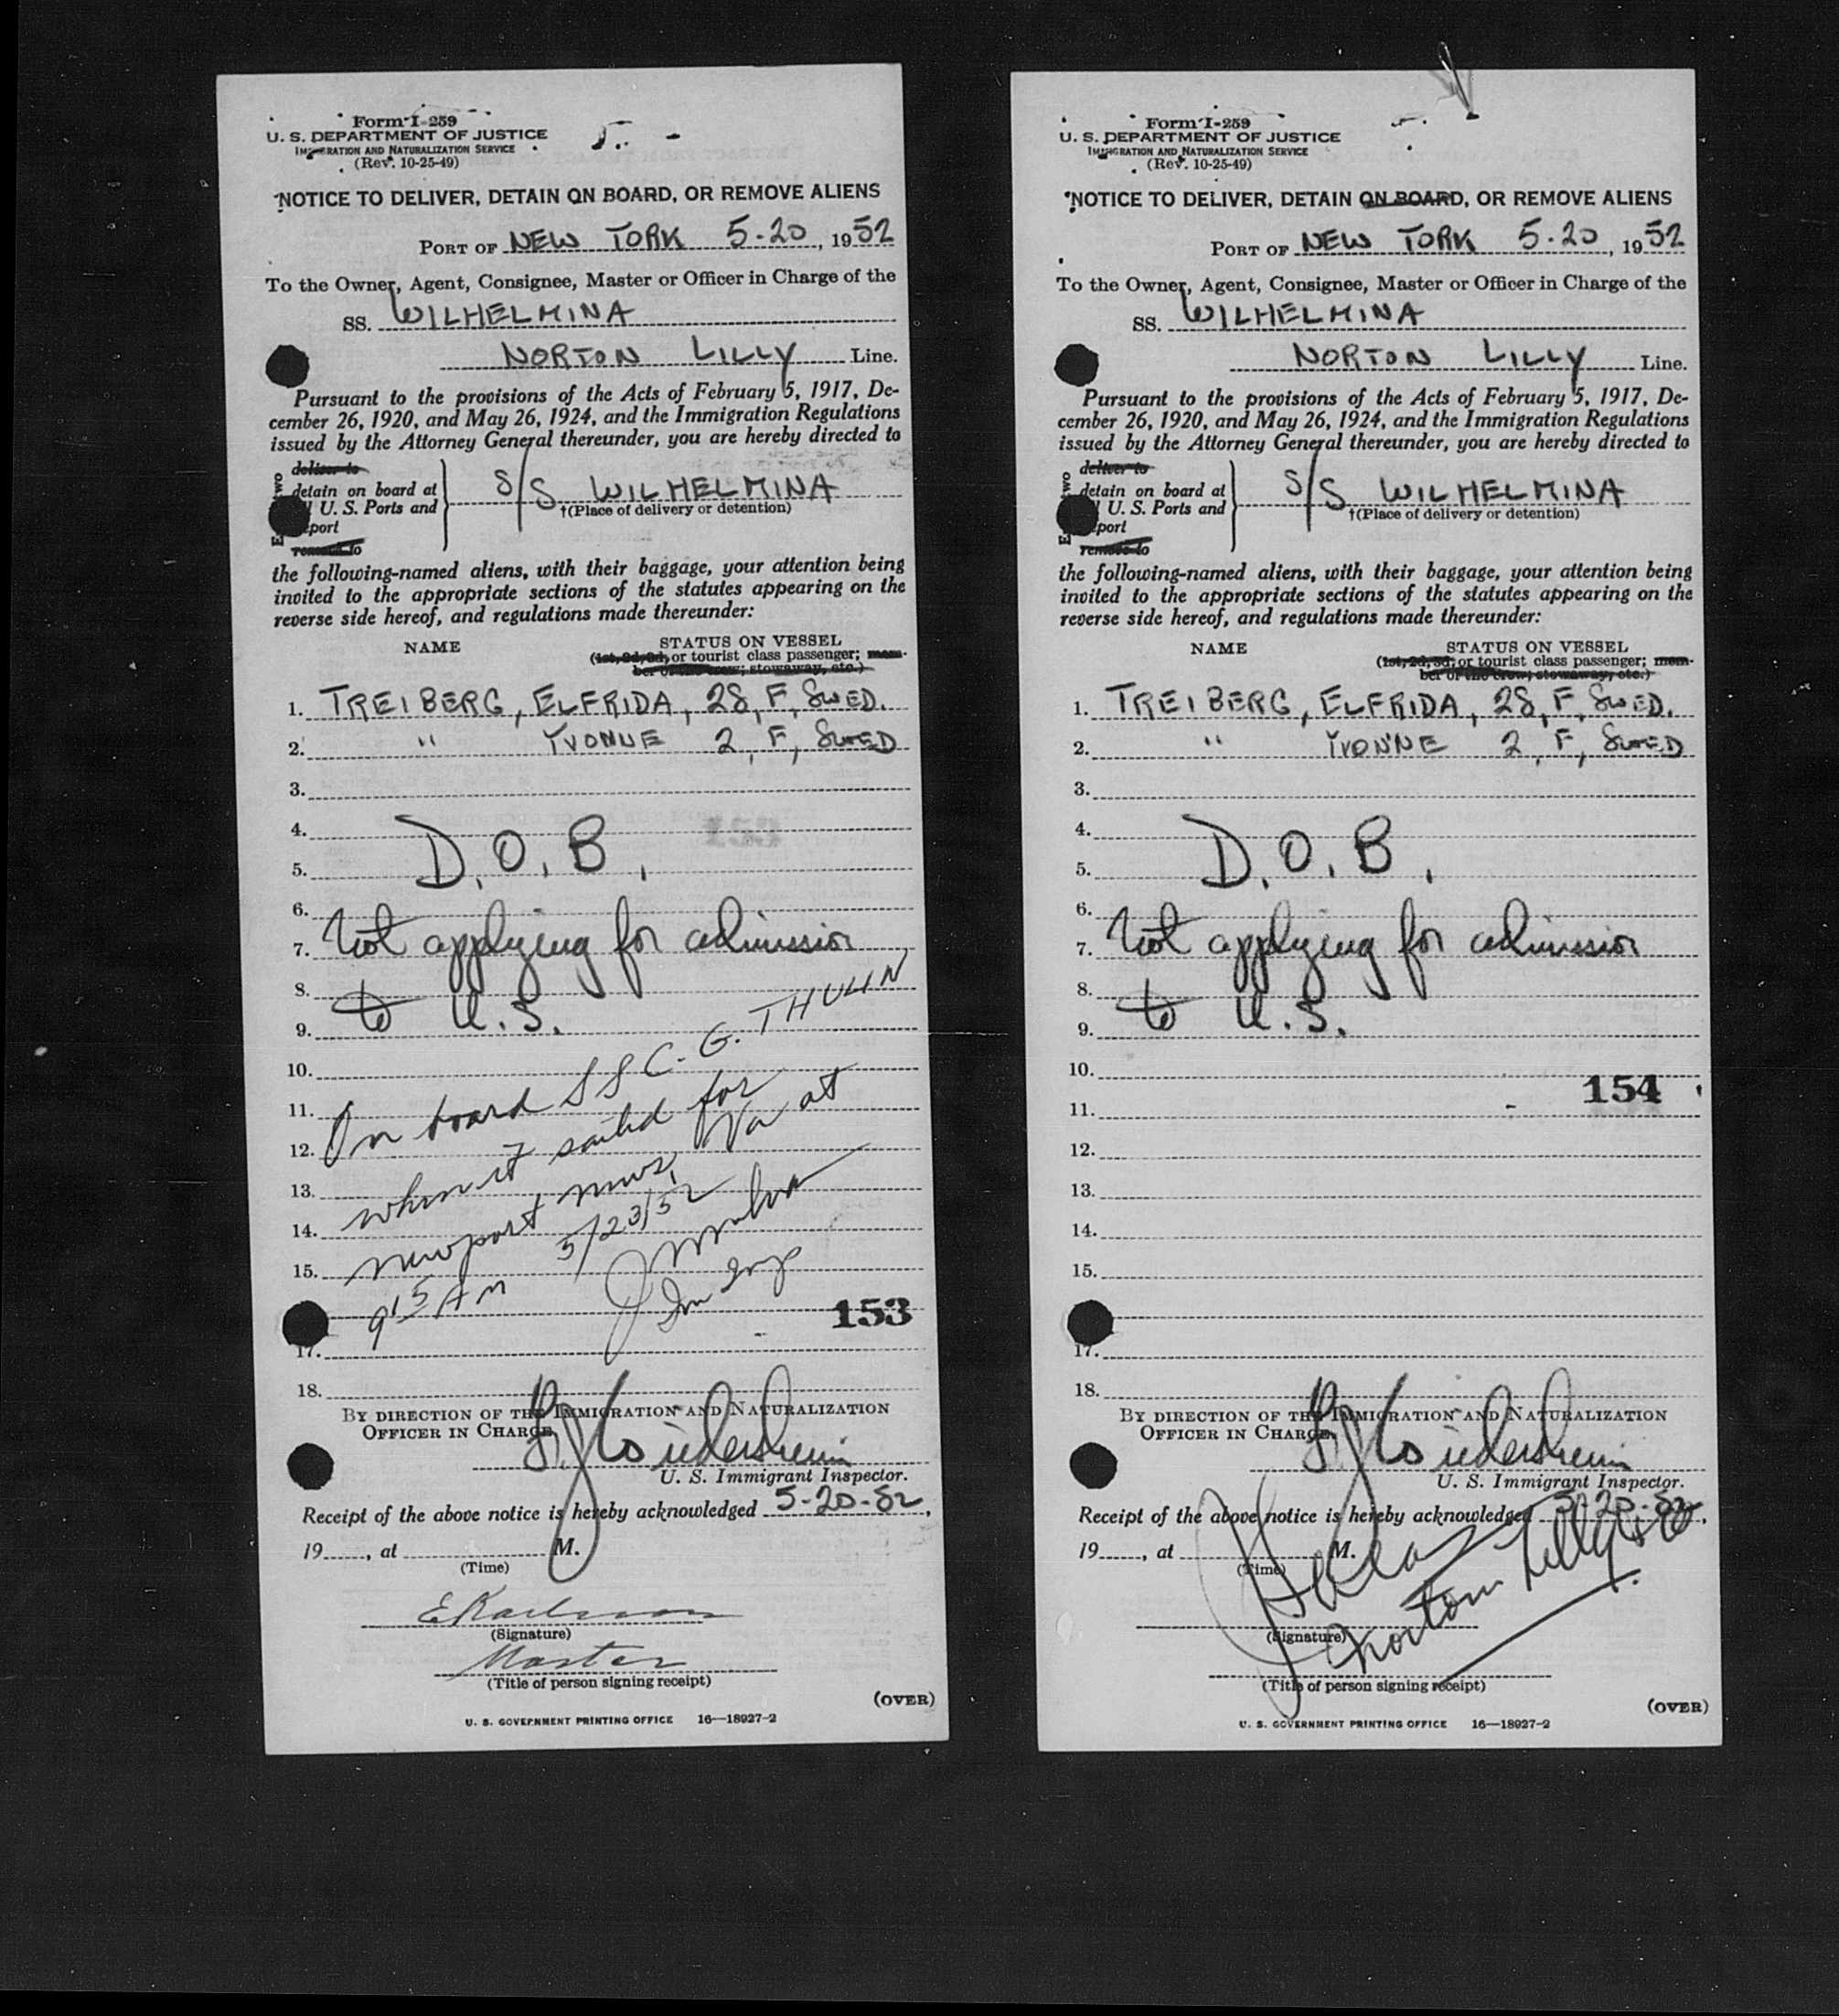 Form I-259
U. S. DEPARTMENT OF JUSTICE
IMMIGRATION AND NATURALIZATION SERVICE
(Rev. 10-25-49)
NOTICE TO DELIVER, DETAIN ON BOARD, OR REMOVE ALIENS
PORT OF NEW YORK 5-20, 1952
To the Owner, Agent, Consignee, Master or Officer in Charge of the
SS. WILHELMINA
NORTON LILLY Line.
Pursuant to the provisions of the Acts of February 5, 1917, De-
cember 26, 1920, and May 26, 1924, and the Immigration Regulations
issued by the Attorney General thereunder, you are hereby directed to
deliver to
detain on board at
U. S. Ports and
port
remove to
S/S WILHELMINA
†(Place of delivery or detention)
the following-named aliens, with their baggage, your attention being
invited to the appropriate sections of the statutes appearing on the
reverse side hereof, and regulations made thereunder:
NAME STATUS ON VESSEL
(1st, 2d, 3d, or tourist class passenger; mem-
ber of the crew; stowaway, etc.)
1. TREIBERG, ELFRIDA, 28, F, SWED.
2. " YVONNE 2, F, SWED
3.
4.
D.O.B.
5.
6.
7. Not applying for admission
8.
9. to U.S.
10.
11. On board SS C. G. THULIN
12.
when it sailed for
13.
14. Newport News, Va at
15. 9 15 AM 5/23/52
Im Insp
153
17.
18.
BY DIRECTION OF THE IMMIGRATION AND NATURALIZATION
OFFICER IN CHARGE
U. S. Immigrant Inspector.
Receipt of the above notice is hereby acknowledged 5-20-52,
19, at M.
(Time)
E Karlsson
(Signature)
Master
(Title of person signing receipt)
(OVER)
U. S. GOVERNMENT PRINTING OFFICE 16—18927-2
Form I-259
U. S. DEPARTMENT OF JUSTICE
IMMIGRATION AND NATURALIZATION SERVICE
(Rev. 10-25-49)
NOTICE TO DELIVER, DETAIN ON BOARD, OR REMOVE ALIENS
PORT OF NEW YORK 5-20, 1952
To the Owner, Agent, Consignee, Master or Officer in Charge of the
SS. WILHELMINA
NORTON LILLY Line.
Pursuant to the provisions of the Acts of February 5, 1917, De-
cember 26, 1920, and May 26, 1924, and the Immigration Regulations
issued by the Attorney General thereunder, you are hereby directed to
deliver to
detain on board at
U. S. Ports and
port
remove to
S/S WILHELMINA
†(Place of delivery or detention)
the following-named aliens, with their baggage, your attention being
invited to the appropriate sections of the statutes appearing on the
reverse side hereof, and regulations made thereunder:
NAME STATUS ON VESSEL
(1st, 2d, 3d, or tourist class passenger; mem-
ber of the crew; stowaway, etc.)
1. TREIBERG, ELFRIDA, 28, F, SWED.
2. " YVONNE 2, F, SWED
3.
4.
D.O.B.
5.
6.
7. Not applying for admission
8.
9. to U.S.
10.
154
11.
12.
13.
14.
15.
17.
18.
BY DIRECTION OF THE IMMIGRATION AND NATURALIZATION
OFFICER IN CHARGE.
U. S. Immigrant Inspector.
Receipt of the above notice is hereby acknowledged 5-20-52,
19, at M.
(Time)
Norton Lilly & Co
(Signature)
(Title of person signing receipt)
(OVER)
U. S. GOVERNMENT PRINTING OFFICE 16—18927-2